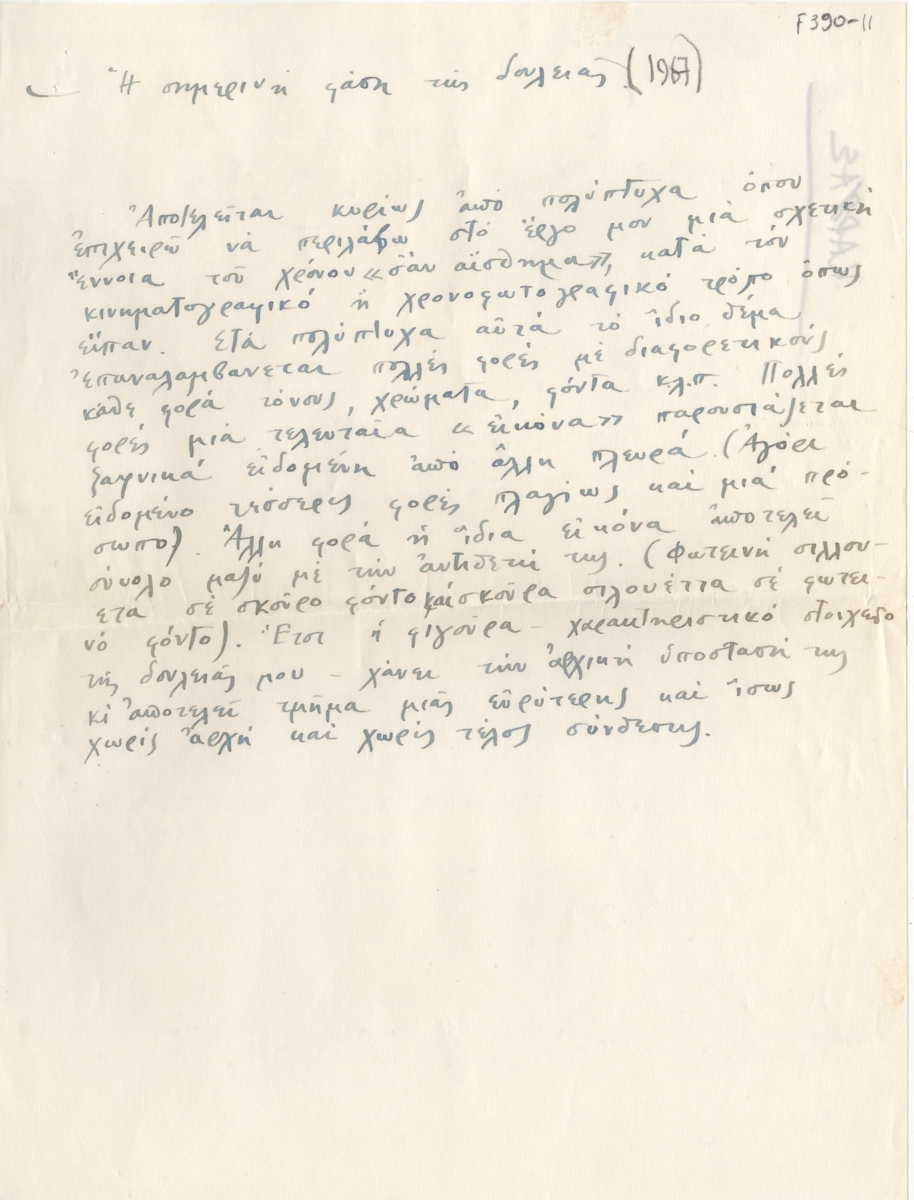 F390-11
Ἡ σημερινή φάση τῆς δουλειᾶς (1967)
Ἀποτελεῖται κυρίως ἀπό πολύπτυχα ὅπου
ἐπιχειρῶ νά περιλάβω στό ἔργο μου μιά σχετική
ἔννοια τοῦ χρόνου «σάν αἴσθημα», κατά τόν
κινηματογραφικό ἤ χρονοφωτογραφικό τρόπο ὅπως
εἶπαν. Στά πολύπτυχα αὐτά τό ἴδιο θέμα
ἐπαναλαμβάνεται πολλές φορές μέ διαφορετικούς
κάθε φορά τόνους, χρώματα, φόντα κλ.π. Πολλές
φορές μιά τελευταία «εἰκόνα» παρουσιάζεται
ξαφνικά εἰδομένη ἀπό ἄλλη πλευρά. (Ἀγόρι
εἰδομένο τέσσερις φορές πλαγίως καί μιά πρό-
σωπο). Ἄλλη φορά ἡ ἴδια εἰκόνα ἀποτελεῖ
σύνολο μαζύ μέ τήν ἀντίθετή της. (Φωτεινή σιλλου-
ετα σέ σκοῦρο φόντο καί σκοῦρα σιλουέττα σέ φωτει-
νό φόντο). Ἔτσι ἡ φιγοῦρα – χαρακτηριστικό στοιχεῖο
τῆς δουλειᾶς μου – χάνει τήν ἀρχική ὑπόστασή της
κι ἀποτελεῖ τμῆμα μιᾶς εὐρύτερης καί ἴσως
χωρίς ἀρχή καί χωρίς τέλος σύνθεσης.